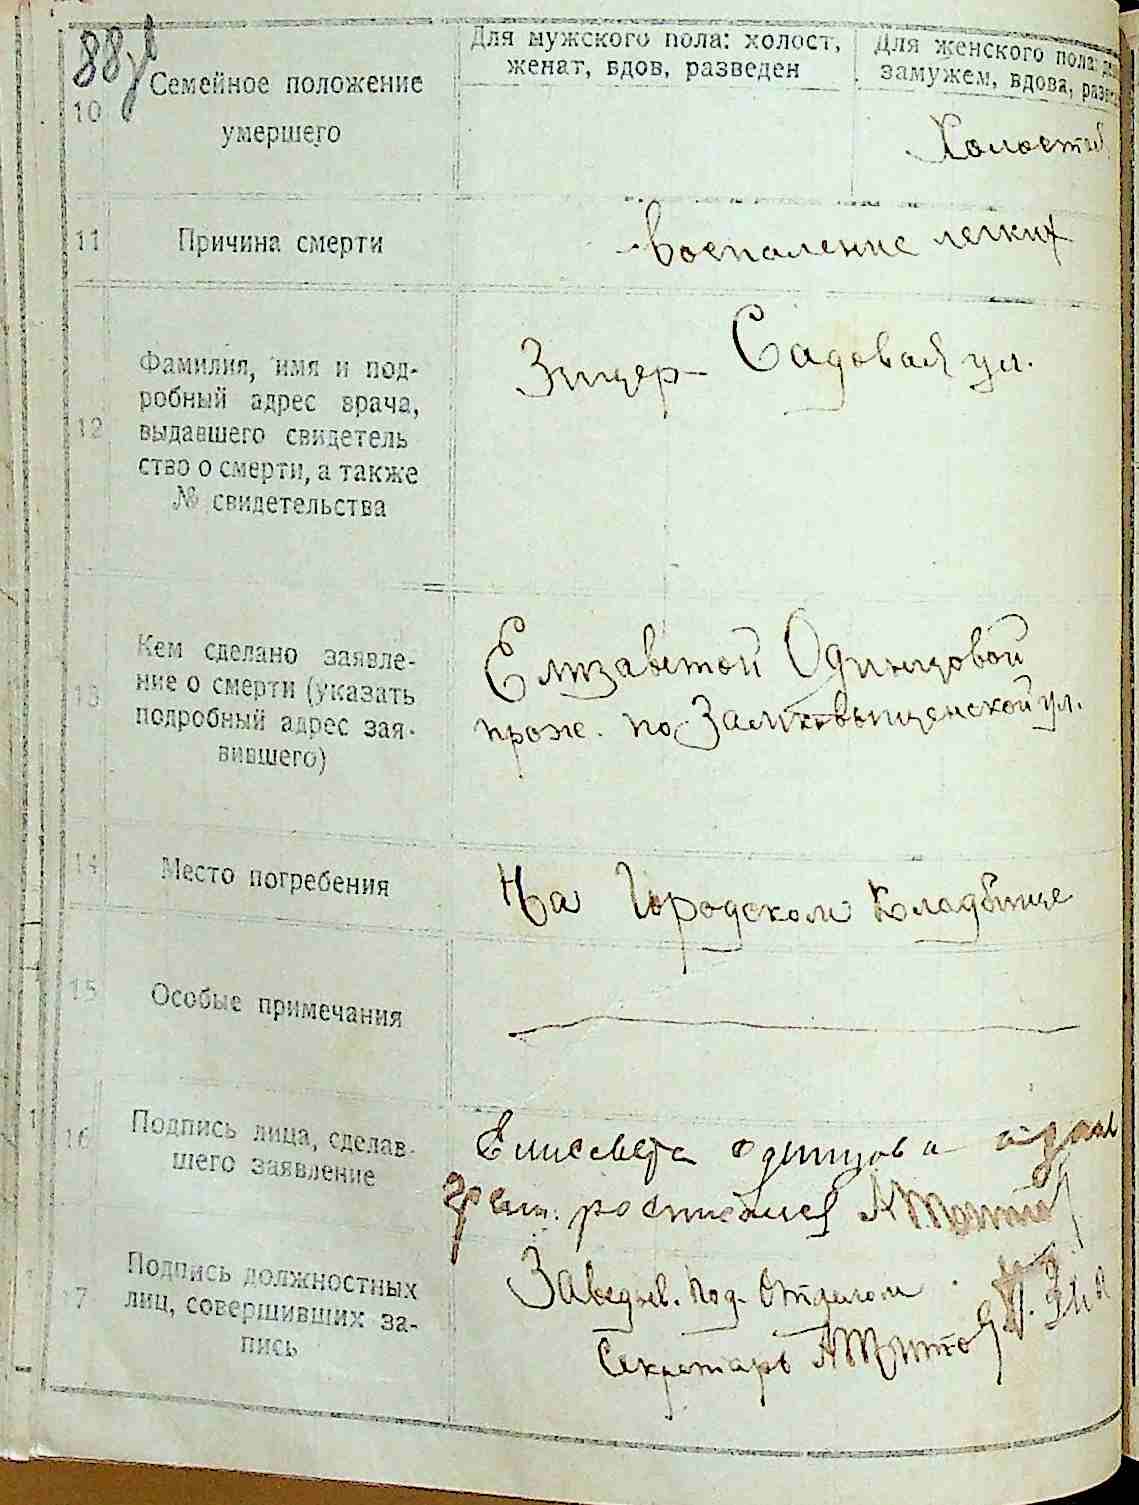 88
10
Семейное положение
умершего
Для мужского пола: холост,
женат, вдов, разведен
Для женского пола:
замужем, вдова,
Холостый
11
Причина смерти
воспаление легких
12
Фамилия, имя и под-
робный адрес врача,
выдавшего свидетель
ство о смерти, а также
№ свидетельства
Зицер - Садовая ул.
13
Кем сделано заявле-
ние о смерти (указать
подробный адрес зая-
вившего)
Елизаветой Одинцовой
прож. по ул.
14
Место погребения
На Городском кладбище
15
Особые примечания
16
Подпись лица, сделав-
шего заявление
Елисавета Одинцова а за
росписался АТитов
7
Подпись должностных
лиц, совершивших за-
пись
Заведыв. Под-Отделом
Секретарь АТитов